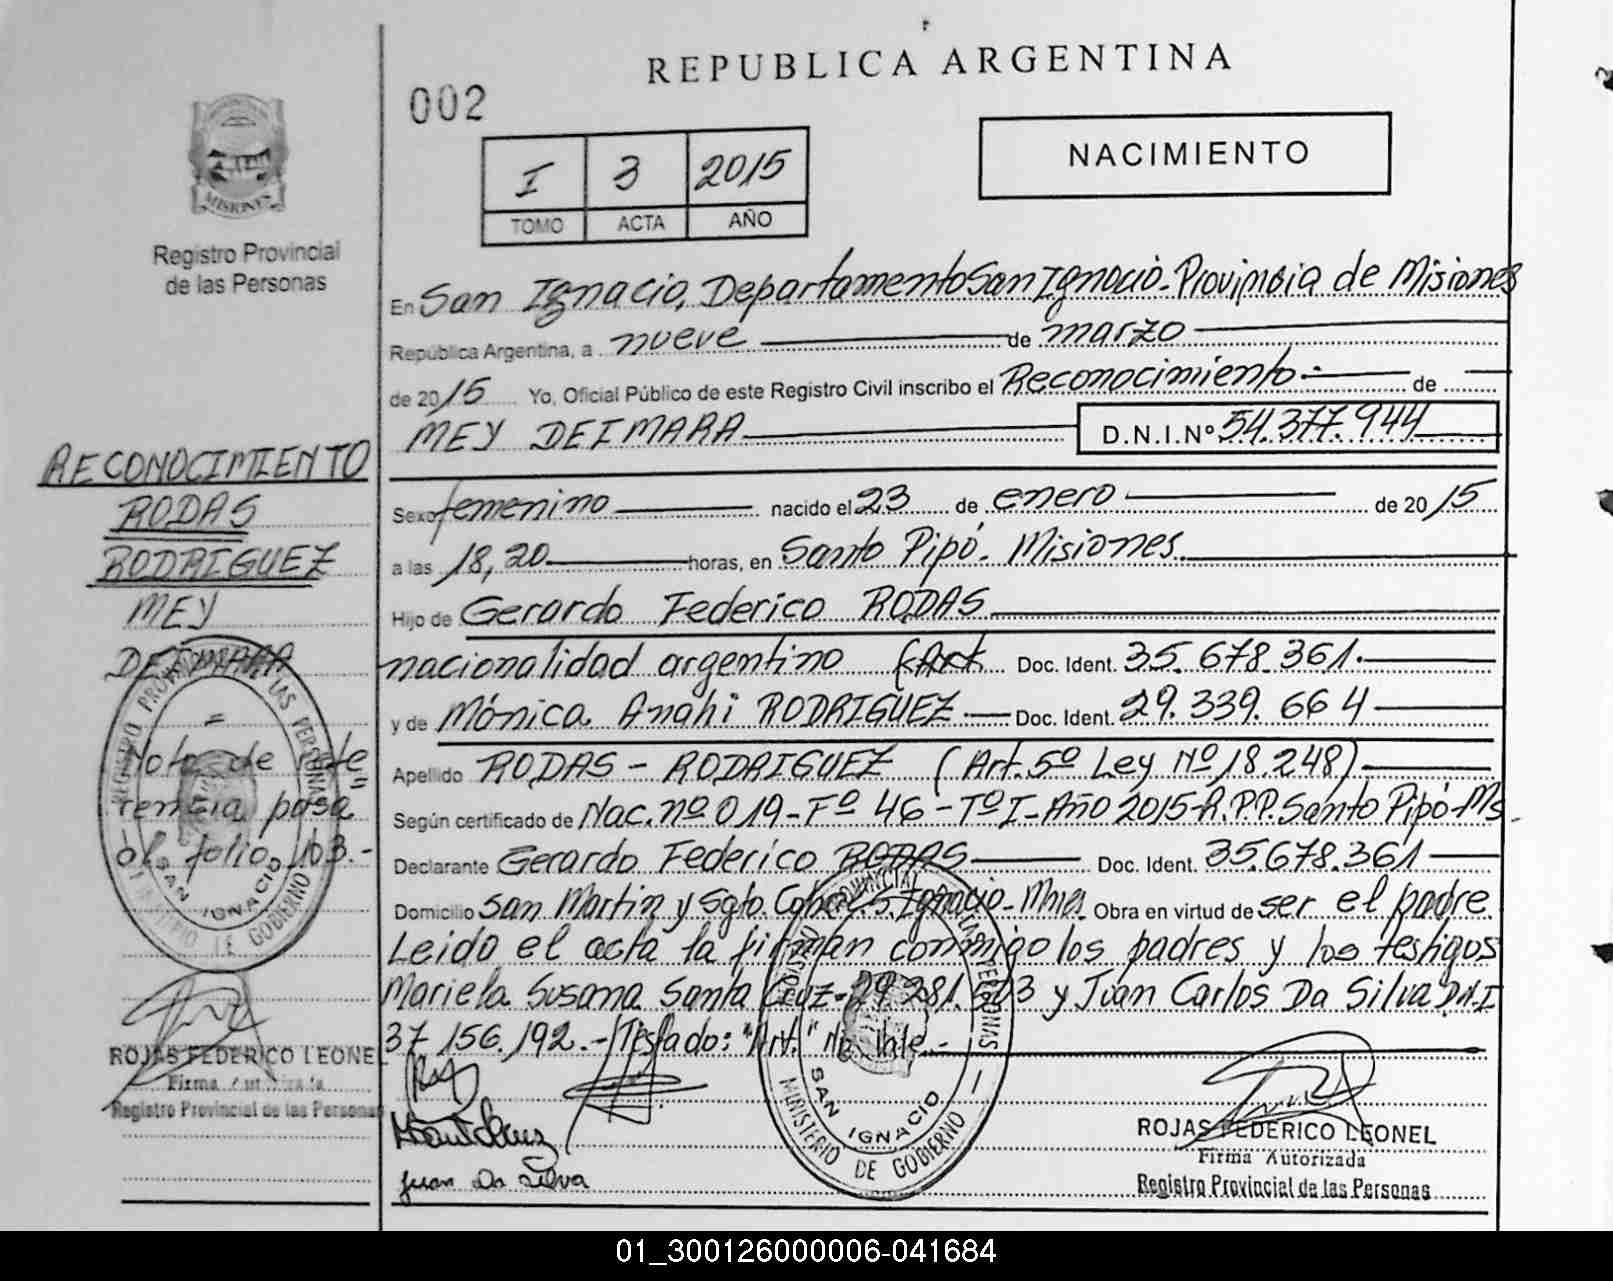 REPUBLICA ARGENTINA
002
NACIMIENTO
I 3 2015
TOMO ACTA AÑO
MISIONES
Registro Provincial
de las Personas
En San Ignacio, Departamento San Ignacio - Provincia de Misiones
República Argentina, a nueve de marzo
de 2015 Yo, Oficial Público de este Registro Civil inscribo el Reconocimiento.- de
MEY DEIMARA D.N.I.Nº 54.377.944
Sexo femenino nacido el 23 de enero de 2015
a las 18,20 horas, en Santo Pipó - Misiones
Hijo de Gerardo Federico RODAS
nacionalidad argentino (Art Doc. Ident. 35.678.361.-
y de Mónica Anahi RODRIGUEZ Doc. Ident. 29.339.664
Apellido RODAS - RODRIGUEZ (Art. 5º Ley Nº 18.248)
Según certificado de Nac. nº 019 - Fº 46 - Tº I - Año 2015 - R.P.P. Santo Pipó - Ms.
Declarante Gerardo Federico RODAS Doc. Ident. 35.678.361
Domicilio San Martin y Sgto. Cabral. S. Ignacio - Mnes. Obra en virtud de ser el padre
Leido el acta la firman conmigo los padres y los testigos
Mariela Susana Santa Cruz - 29.281. y Juan Carlos Da Silva D.N.I
37.156.192.- Testado: "Art." No Vale.-
RECONOCIMIENTO
RODAS
RODRIGUEZ
MEY
DEIMARA
=
Nota de refe
rencia pasa
al folio 103.-
REGISTRO PROVINCIAL DE LAS PERSONAS
SAN IGNACIO
MINISTERIO DE GOBIERNO
ROJAS FEDERICO LEONEL
Firma Autorizada
Registro Provincial de las Personas
Juan Da Silva
REGISTRO PROVINCIAL DE LAS PERSONAS
SAN IGNACIO
MINISTERIO DE GOBIERNO
ROJAS FEDERICO LEONEL
Firma Autorizada
Registro Provincial de las Personas
01_300126000006-041684